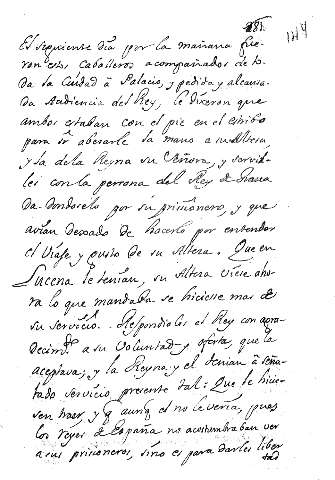 181.
El seguiente dia por la mañana fue-
ron estos Caballeros acompañados de to-
da la Ciudad à Palacio, y pedida y alcanza-
da Audiencia del Rey, le dixeron que
ambos estaban con el pie en el estribo
para ir abesarle la mano a su Alteza,
y la de la Reyna su Señora, y servir-
les con la persona del Rey de
dandoselo por su prisionero, y que
avian dexado de hacerlo por entender
el Viaje, y gusto de su Alteza. Que en
Lucena le tenian, su Alteza viese aho-
ra lo que mandaba se hiciesse mas de
su servicio. Respondioles el Rey con agra-
decimto. a su Voluntad y oferta, que la
aceptava, y la Reyna y el tenian à seña-
lado servicio, presente tal: Que le hicie-
sen traer, y q aunq el no le veria, pues
los reyes de España no acostumbraban ver
a sus prisioneros, sino es para darles liber
tad